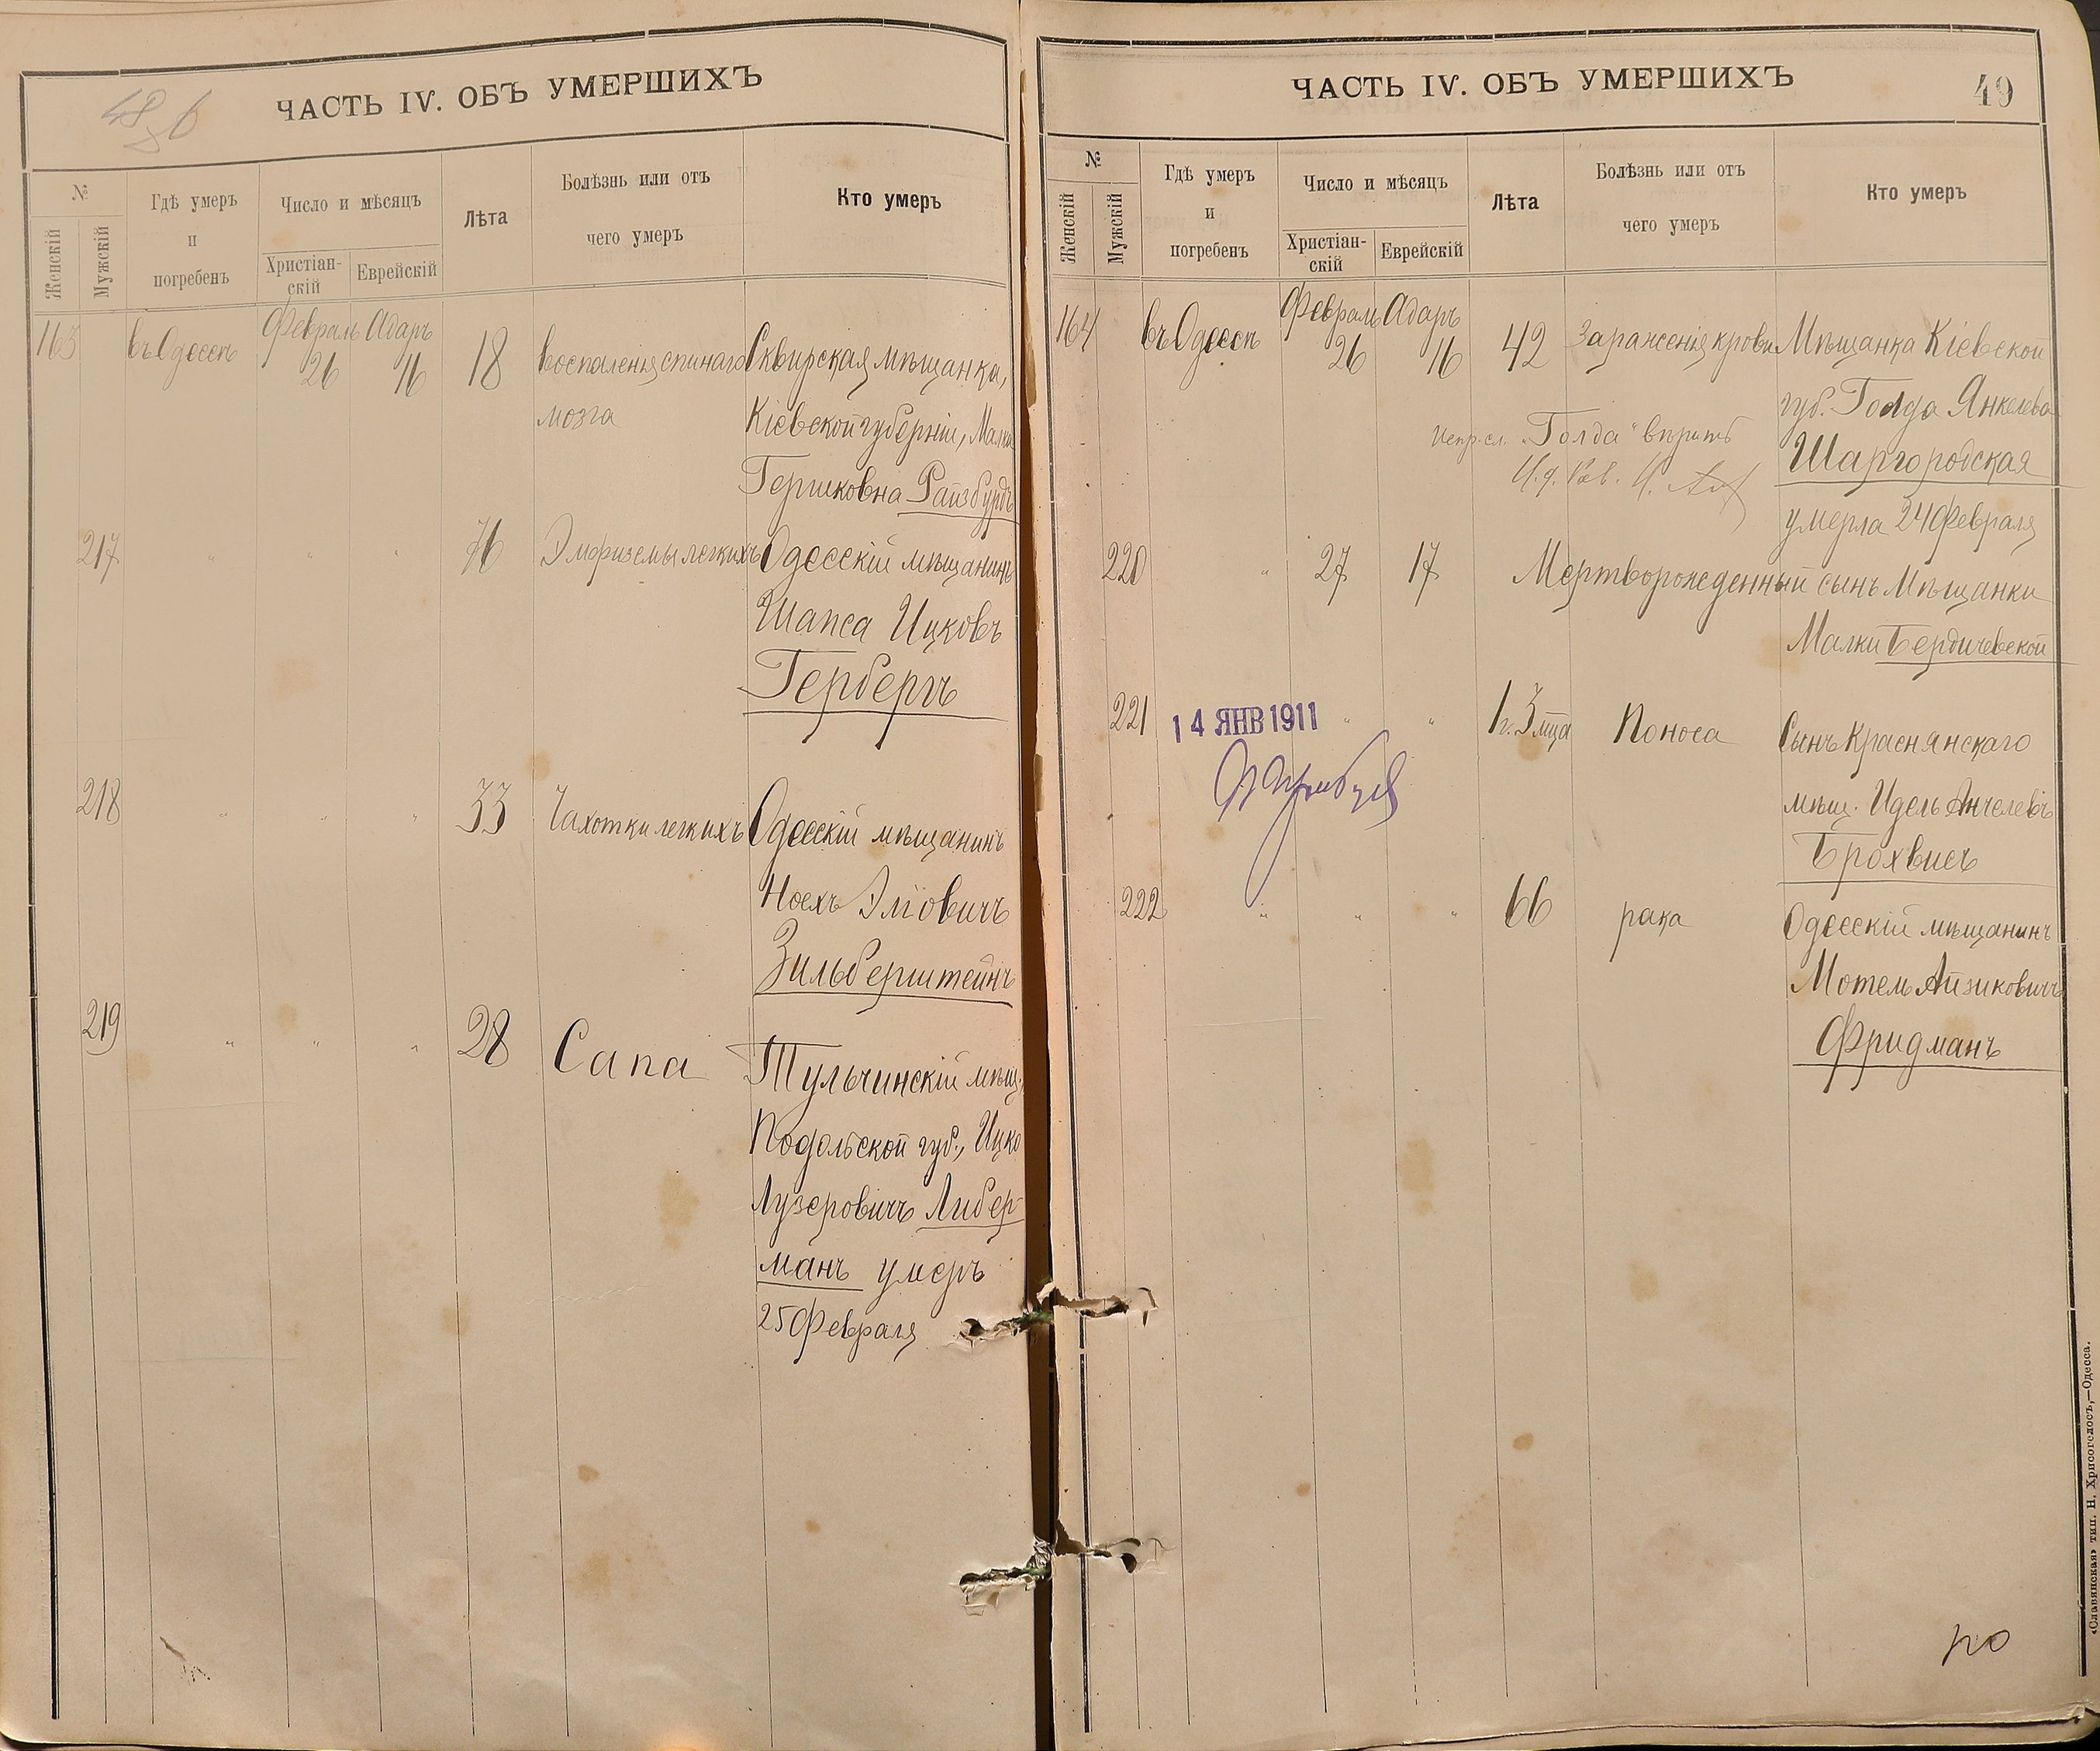 ЧАСТЬ IV. ОБЪ УМЕРШИХЪ
№
Женскій
Мужскій
Гдѣ умеръ
и
погребенъ
Число и мѣсяцъ
Христіан-
скій
Еврейскій
Лѣта
Болѣзнь или отъ
чего умеръ
Кто умеръ
163 въ Одессѣ Февраль 26 Адаръ 16 18 воспаленія спинаго Сквирская мѣщанка,
мозга Кіевской губерніи, Малка
Гершковна Райзбурдъ
217 " " " 76 Эмфиземы легкихъ Одесскій мѣщанинъ
Шапса Ицковъ
Герберъ
218 " " " 33 Чахотки легкихъ Одесскій мѣщанинъ
Ноехъ Эліовичъ
Зильберштейнъ
219 " " " 28 Сапа Тульчинскій мѣщ.
Подольской губ., Ицко
Лузеровичъ Либер-
манъ умеръ
25 Февраля
ЧАСТЬ IV. ОБЪ УМЕРШИХЪ
49
№
Женскій
Мужскій
Гдѣ умеръ
и
погребенъ
Число и мѣсяцъ
Христіан-
скій
Еврейскій
Лѣта
Болѣзнь или отъ
чего умеръ
Кто умеръ
164 въ Одессѣ Февраль 26 Адаръ 16 42 Зараженія крови Мѣщанка Кіевской
губ. Голда Янкелева
Испр. сл. "Голда" вѣрить
Шаргородская
И. д. Рав.
умерла 24 Февраля
220 " 27 17 Мертворожденный сынъ Мѣщанки
Малки Бердичевской
221 " " 1 г. 3 мца Поноса Сынъ Краснянскаго
14 ЯНВ 1911
мѣщ. Идель Анчелевъ
Брохвисъ
222 " " " 66 рака Одесскій мѣщанинъ
Мотель Айзиковичъ
Фридманъ
по
«Славянская» тип. Н. Хрисогелосъ,—Одесса.